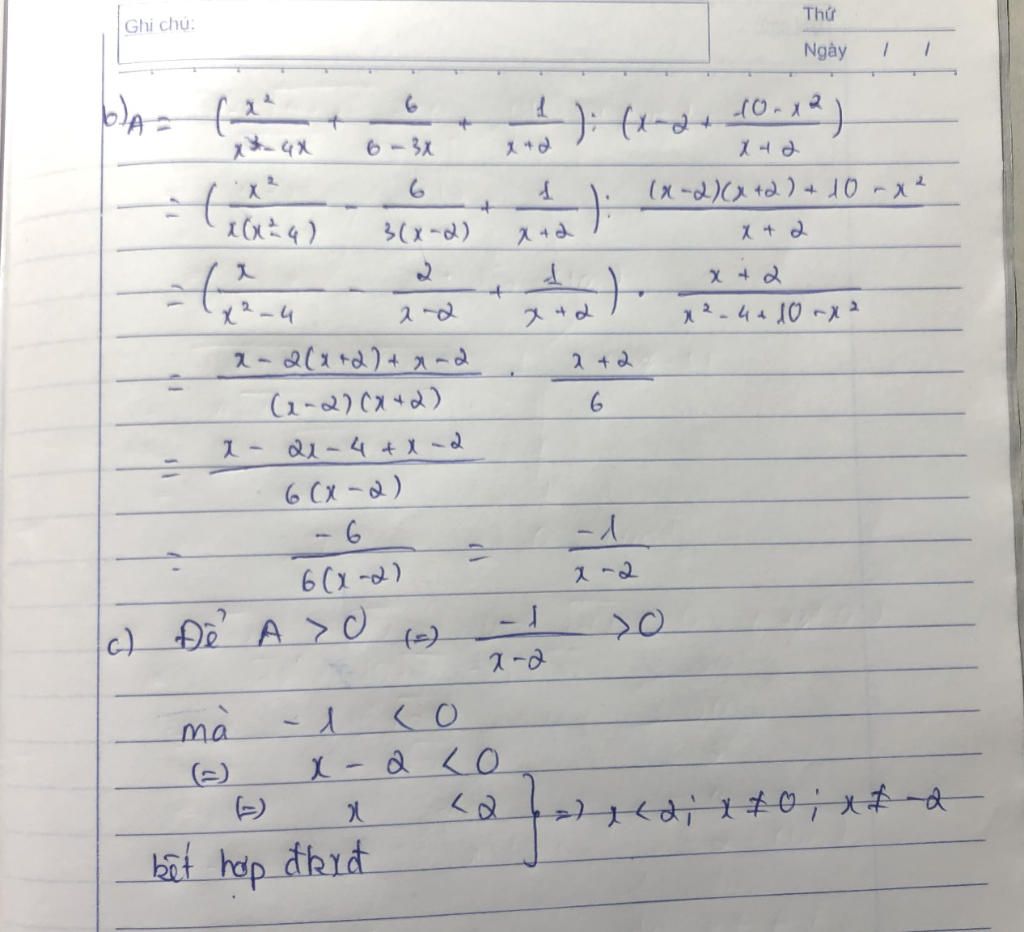 Ghi chú:
Thứ
Ngày / /
b) A = (x²/(x³ - 4x) + 6/(6 - 3x) + 1/(x+2)) : (x - 2 + (10 - x²)/(x+2))
= (x²/(x(x² - 4)) - 6/(3(x-2)) + 1/(x+2)) : ((x-2)(x+2) + 10 - x²)/(x+2)
= (x/(x² - 4) - 2/(x-2) + 1/(x+2)) . (x+2)/(x² - 4 + 10 - x²)
= (x - 2(x+2) + x - 2)/((x-2)(x+2)) . (x+2)/6
= (x - 2x - 4 + x - 2)/(6(x-2))
= -6/(6(x-2)) = -1/(x-2)
c) Để A > 0 (=) -1/(x-2) > 0
mà -1 < 0
(=) x - 2 < 0
(=) x < 2 } => x < 2; x ≠ 0; x ≠ -2
kết hợp đkxđ